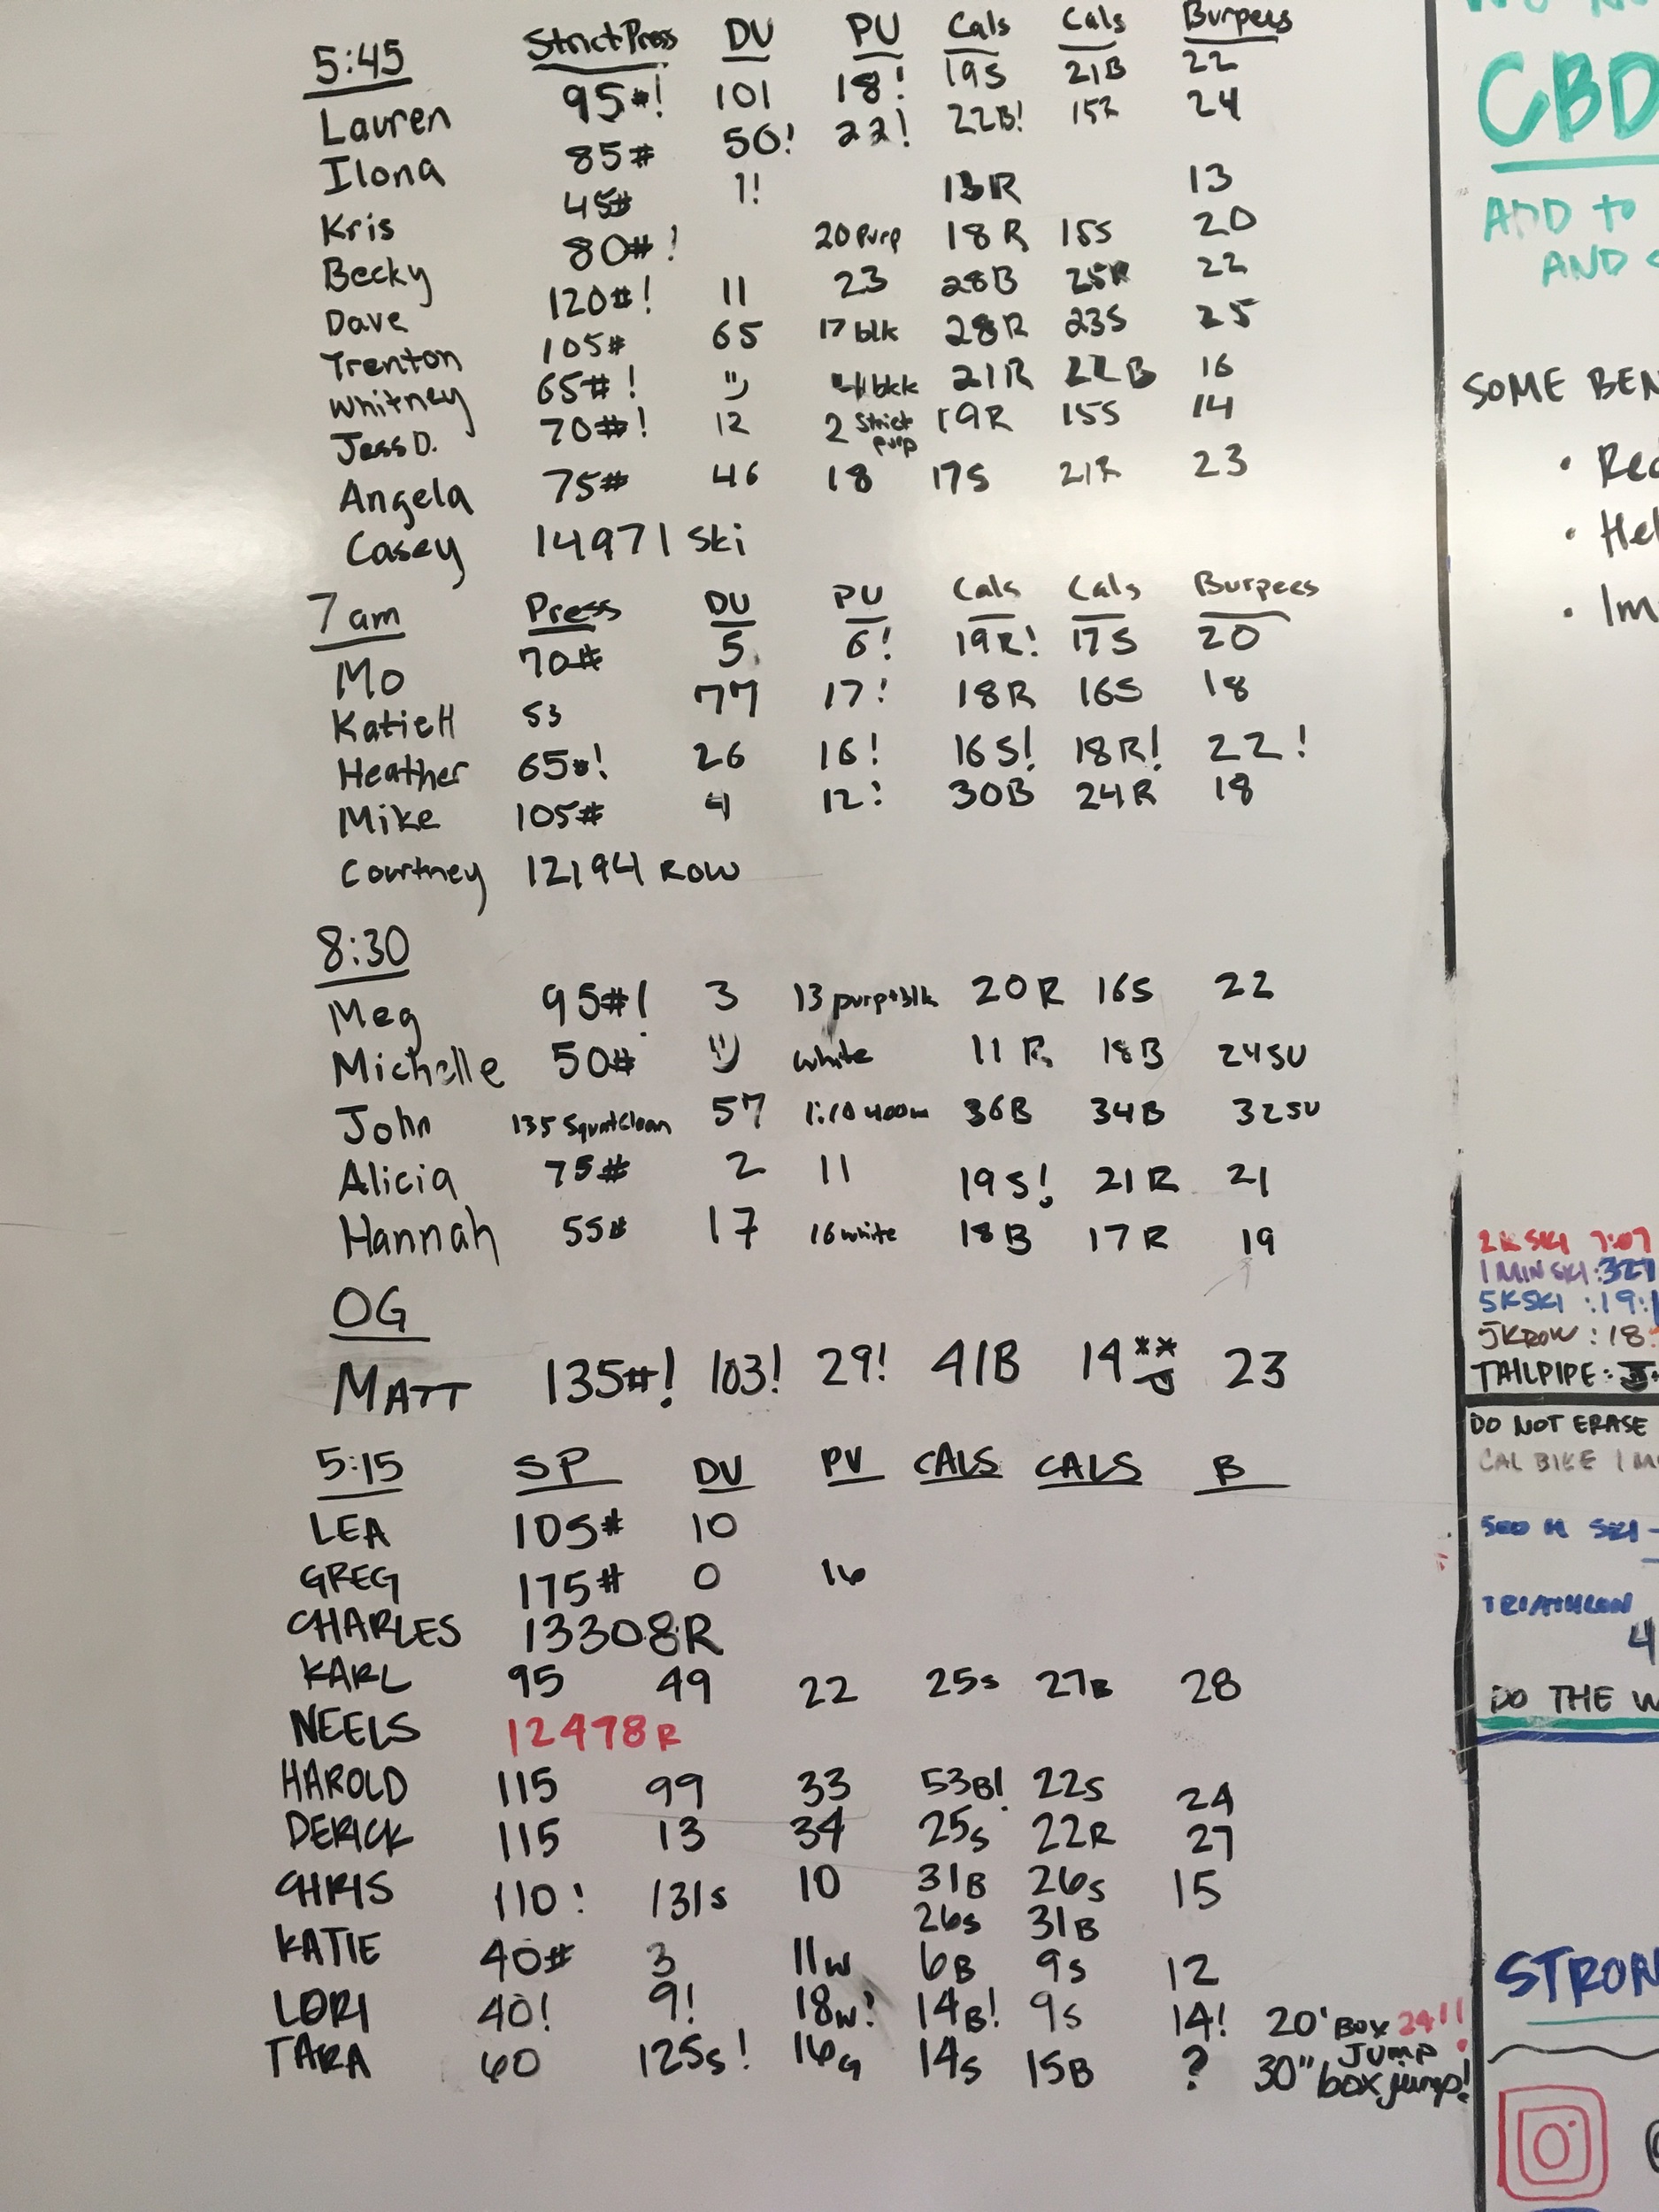 5:45 Strict Press DU PU Cals Cals Burpees
Lauren 95#! 101 18! 19S 21B 22
Ilona 85# 50! 22! 22B! 15R 24
Kris 45# 1! 13R 13
Becky 80#! 20 purp 18R 15S 20
Dave 120#! 11 23 28B 25R 22
Trenton 105# 65 17 blk 28R 23S 25
Whitney 65#! 21R 22B 16
Jess D. 70#! 12 2 Strict purp 19R 15S 14
Angela 75# 46 18 17S 21R 23
Casey 14971 Ski
7am Press DU PU Cals Cals Burpees
Mo 70# 5 6! 19R! 17S 20
Katie H 53 77 17! 18R 16S 18
Heather 65#! 26 16! 16S! 18R! 22!
Mike 105# 4 12! 30B 24R 18
Courtney 12194 ROW
8:30
Meg 95#! 3 13 purp+blk 20R 16S 22
Michelle 50# white 11R 18B 24SU
John 135 Squat Clean 57 1:10 400m 36B 34B 32SU
Alicia 75# 2 11 19S! 21R 21
Hannah 55# 17 16 white 18B 17R 19
OG
MATT 135#! 103! 29! 41B 14** 23
5:15 SP DU PU CALS CALS B
LEA 105# 10
GREG 175# 0 16
CHARLES 13308R
KARL 95 49 22 25S 27B 28
NEELS 12478R
HAROLD 115 99 33 53B! 22S 24
DERICK 115 13 34 25S 22R 27
CHRIS 110! 131S 10 31B 26S 15
26S 31B
KATIE 40# 3 11W 6B 9S 12
LORI 40! 9! 18W! 14B! 9S 14! 20' BOX JUMP 24!!
TARA 60 125S! 16G 14S 15B ? 30" box jump!
CBD
ADD to
AND
SOME BEN
• Red
• Hel
• Im
2K SKI 7:07
1 MIN SKI: 327
5K SKI: 19:
5K ROW: 18:
TAILPIPE:
DO NOT ERASE
CAL BIKE 1 M
500 M SKI -
TRIATHLON
4
DO THE W
STRON